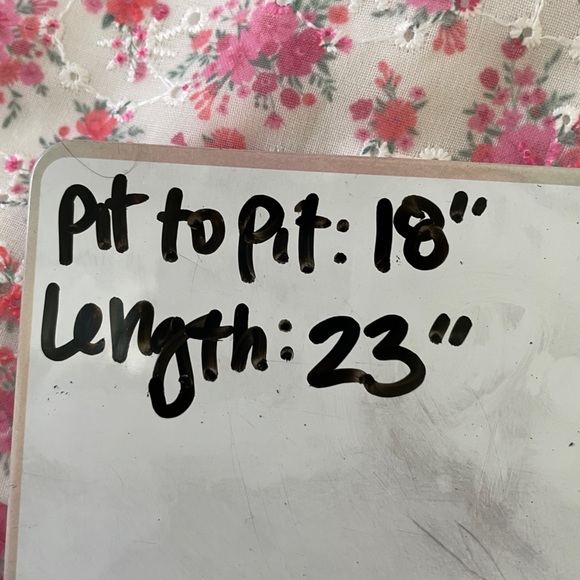 Pit to Pit: 18"
Length: 23"